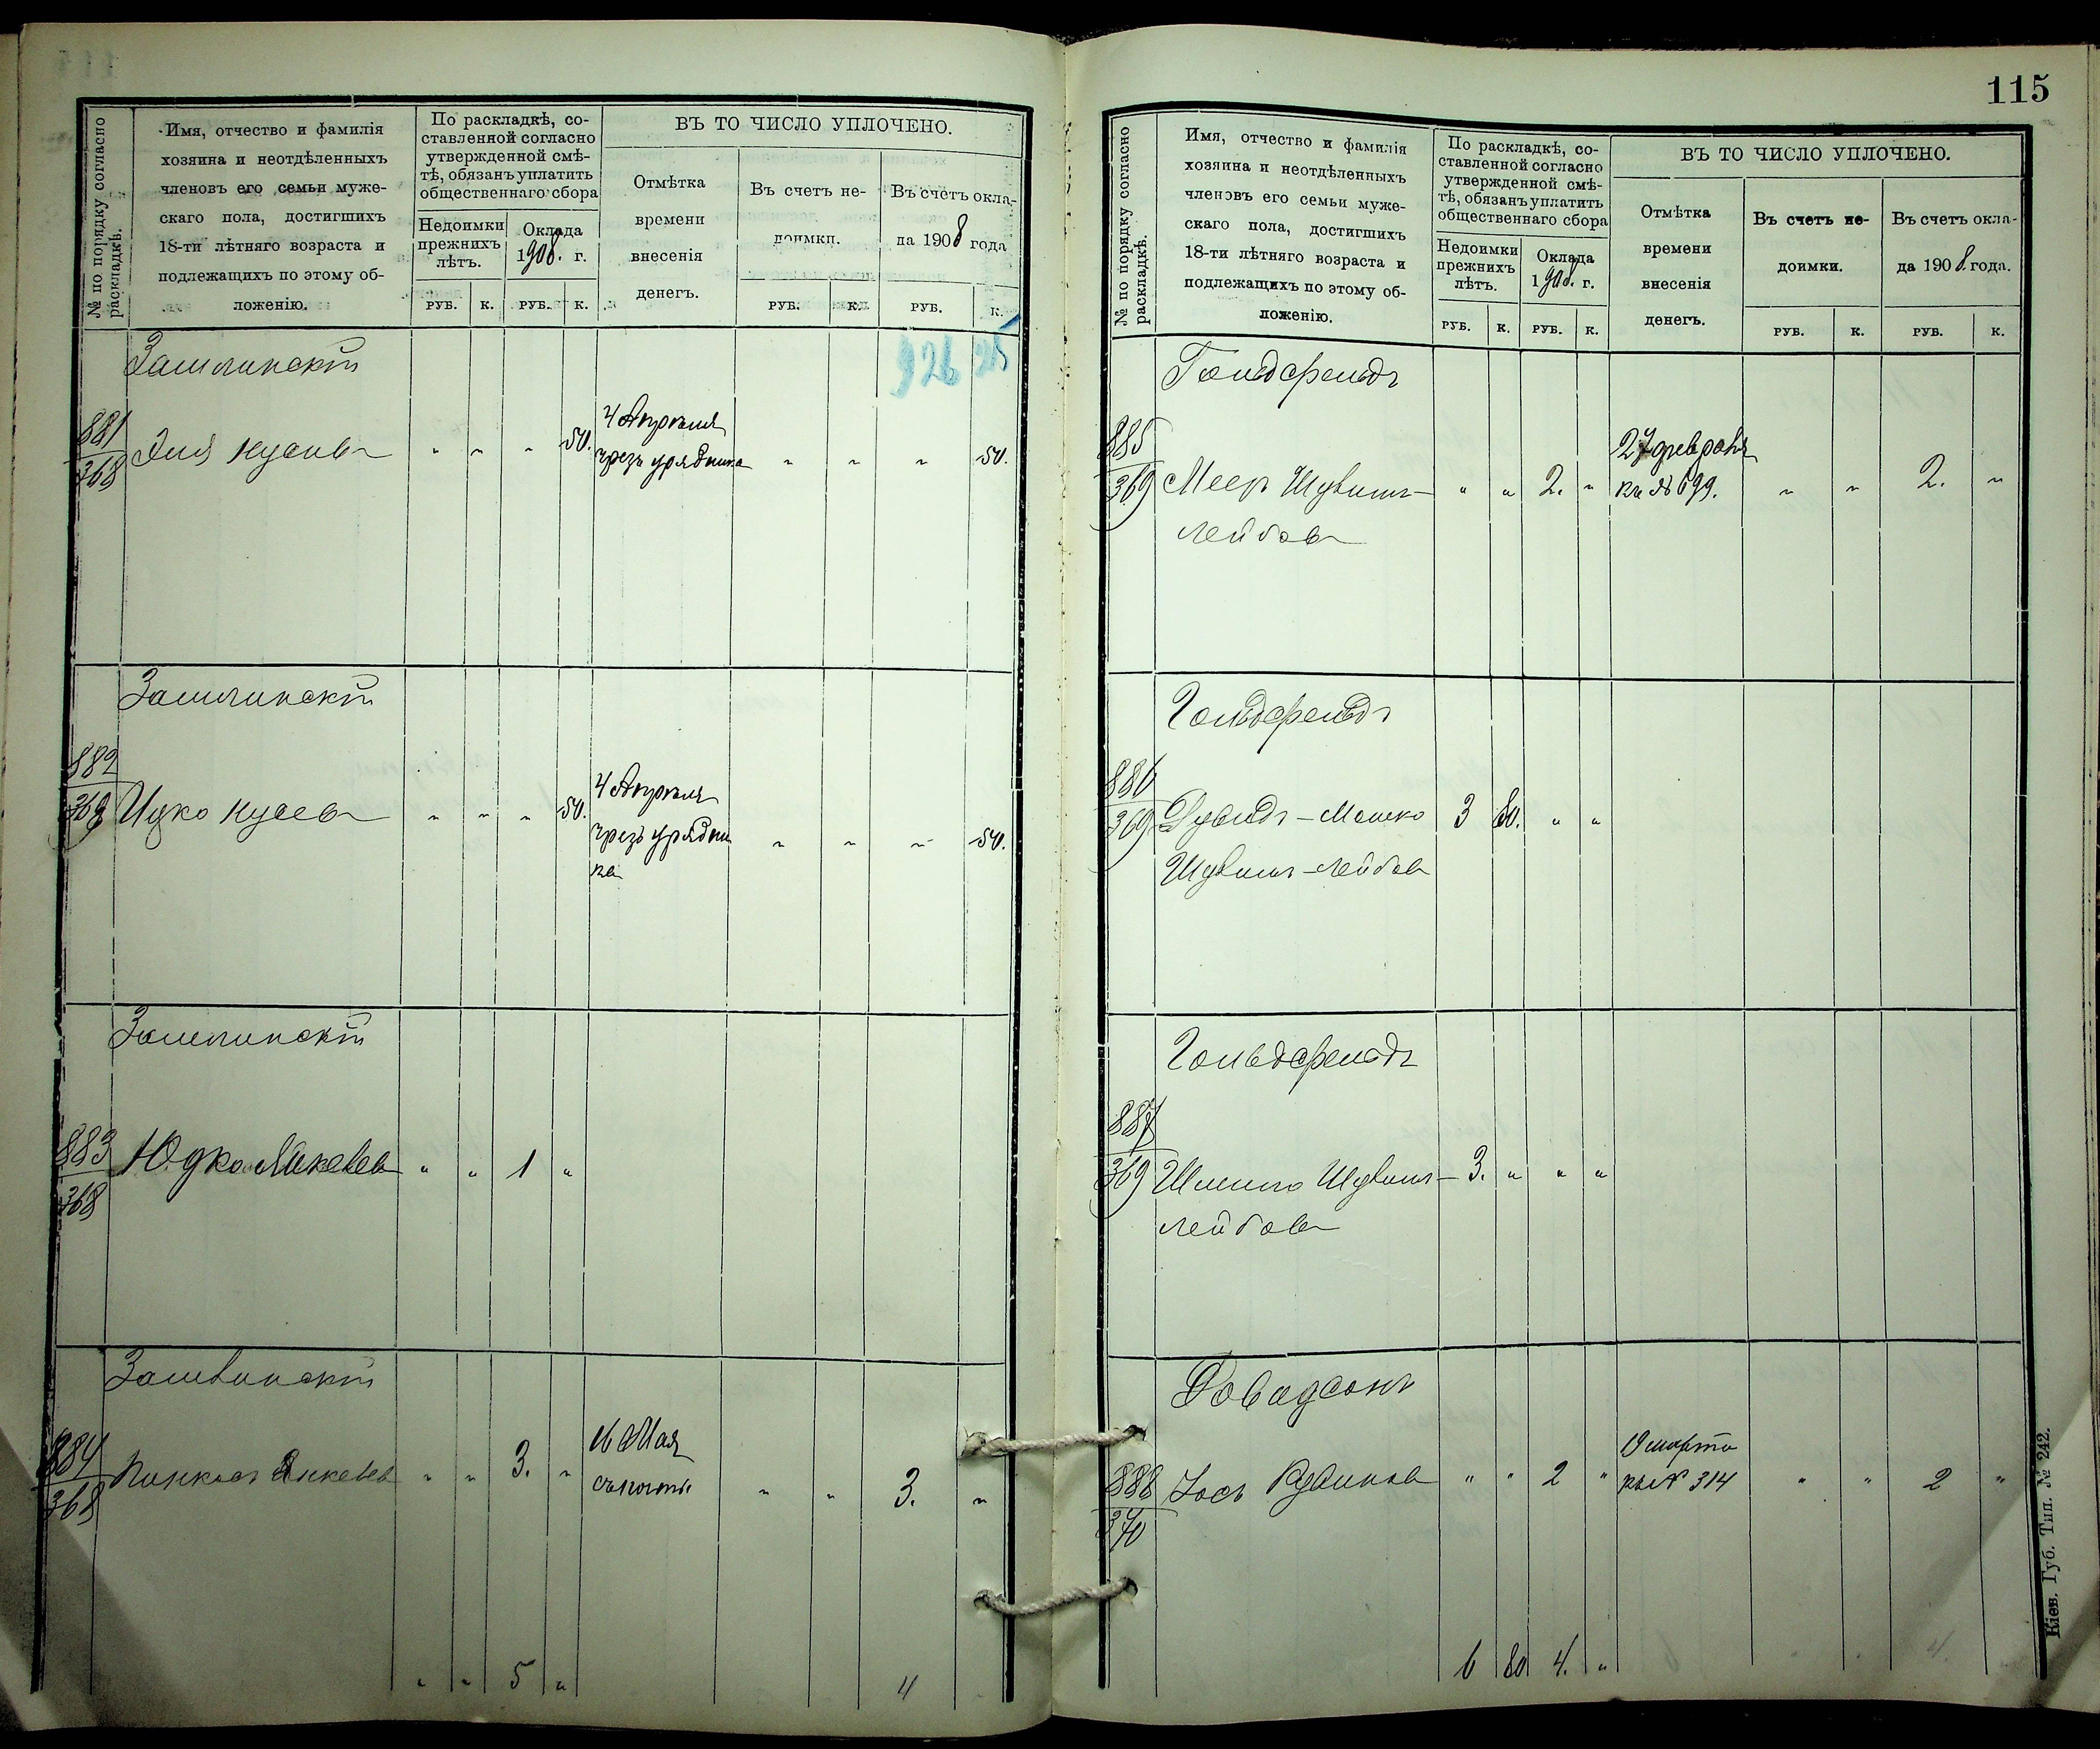 № по порядку согласно раскладкѣ.
Имя, отчество и фамилія
хозяина и неотдѣленныхъ
членовъ его семьи муже-
скаго пола, достигшихъ
18-ти лѣтняго возраста и
подлежащихъ по этому об-
ложенію.
По раскладкѣ, со-
ставленной согласно
утвержденной смѣ-
тѣ, обязанъ уплатить
общественнаго сбора
Недоимки
прежнихъ
лѣтъ.
Оклада
1908. г.
РУБ. К. РУБ. К.
ВЪ ТО ЧИСЛО УПЛОЧЕНО.
Отмѣтка
времени
внесенія
денегъ.
Въ счетъ не-
доимки.
Въ счетъ окла-
да 1908 года
РУБ. К. РУБ. К.
926 25
881
368
" " " 50.
4 Апрѣля
чрезъ урядника
" " " 50.
882
368
Ицко
" " " 50.
4 Апрѣля
чрезъ урядни
ка
" " " 50.
883
368
Юдко Янкелев
" " 1 "
884
368
Пинкас Янкелев
" " 3. "
16 Мая
" " 3. "
" " 5 "
4
115
№ по порядку согласно раскладкѣ.
Имя, отчество и фамилія
хозяина и неотдѣленныхъ
членовъ его семьи муже-
скаго пола, достигшихъ
18-ти лѣтняго возраста и
подлежащихъ по этому об-
ложенію.
По раскладкѣ, со-
ставленной согласно
утвержденной смѣ-
тѣ, обязанъ уплатить
общественнаго сбора
Недоимки
прежнихъ
лѣтъ.
Оклада
1908. г.
РУБ. К. РУБ. К.
ВЪ ТО ЧИСЛО УПЛОЧЕНО.
Отмѣтка
времени
внесенія
денегъ.
Въ счетъ не-
доимки.
Въ счетъ окла-
да 1908. года.
РУБ. К. РУБ. К.
Гольдфельдъ
885
369
Меер Шувиль-
Лейбов
" " 2. "
27 февраля
кв № 699.
" " 2. "
Гольдфельдъ
886
369
Дувидъ-Мошко
Шувиль-Лейбов
3 80. " "
Гольдфельдъ
887
369
Шувиль-
Лейбов
3. " " "
Довидсонъ
888
370
Іось
" " 2 "
19 марта
кв № 314
" " 2 "
6 80 4. "
4.
Кіев. Губ. Тип. № 242.